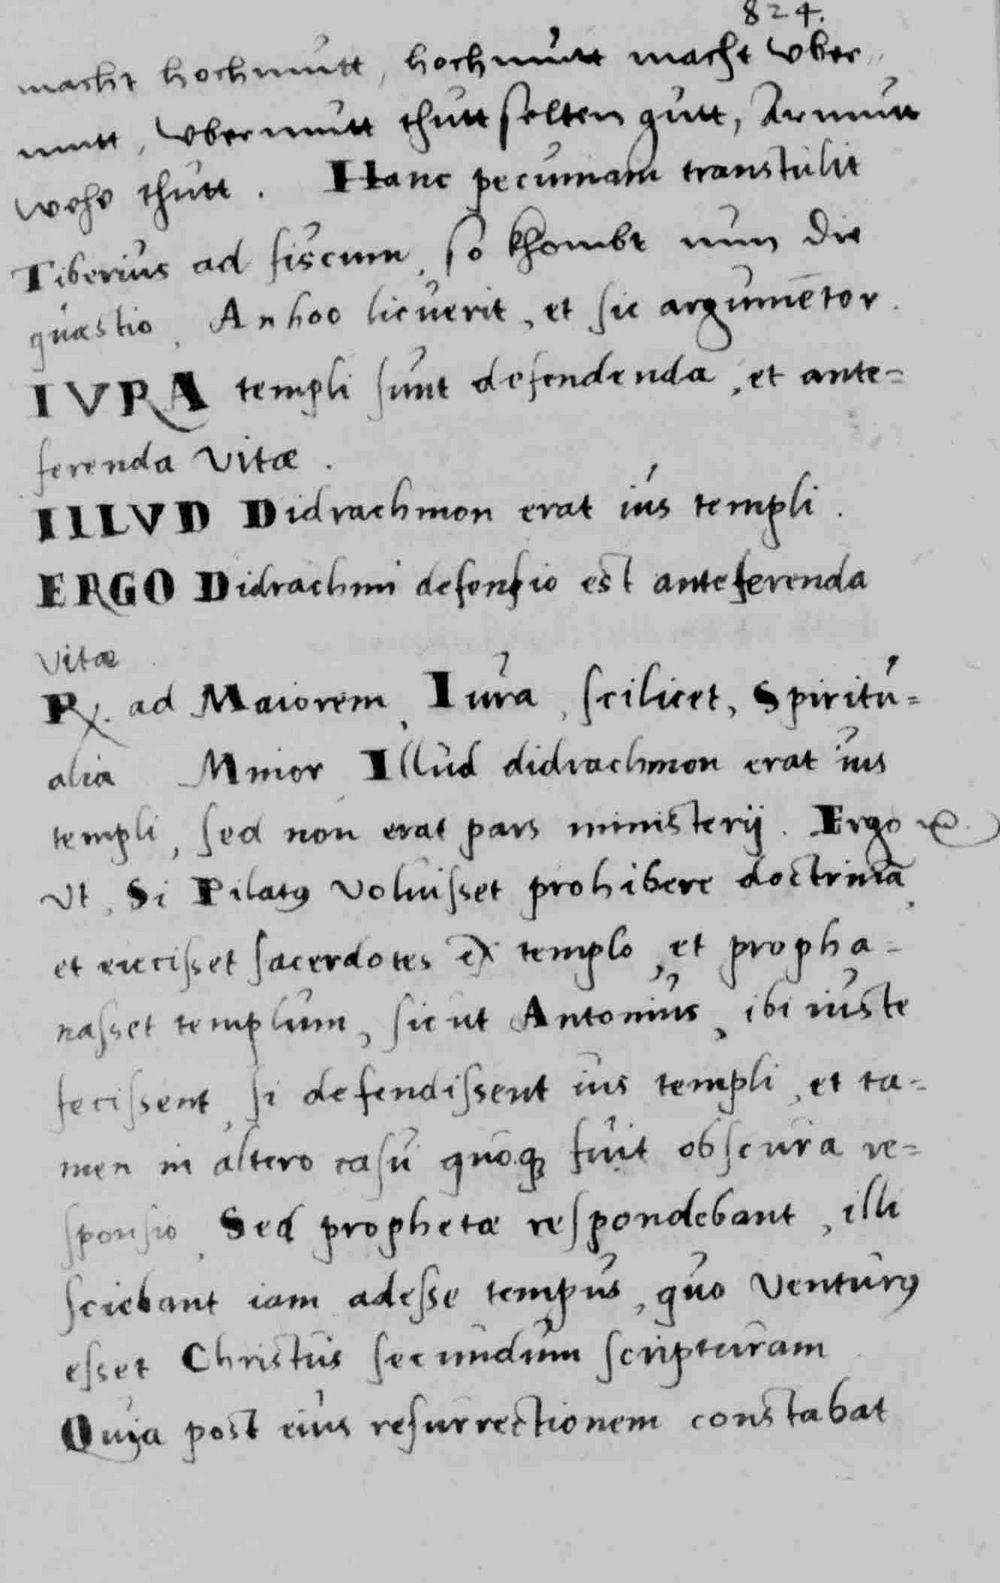 824.
macht hochmutt, hochmutt macht vber„
mutt, vbermutt thutt selten gutt, Armutt
wehe thutt. Hanc pecuniam transtulit
Tiberius ad fiscum, so khombt nun die
quæstio, An hoc licuerit, et sic argumētor.
IVRA templi sunt defendenda, et ante=
ferenda vitæ.
IllLVD Didrachmon erat ius templi.
ERGO Didrachmi defensio est anteferenda
vitæ
℞. ad Maiorem, Iura, scilicet, Spiritu=
alia Minor Illud didrachmon erat ius
templi, sed non erat pars ministerij. Ergo &c.
Vt, Si Pilatꝰ voluisset prohibere doctrinā,
et eiecisset sacerdotes ex templo, et propha=
nasset templum, sicut Antonius, ibi iuste
fecissent, si defendissent ius templi, et ta=
men in altero casu quoqꝫ fuit obscura re=
sponsio, Sed prophetæ respondebant, illi
sciebant iam adesse tempus, quo venturꝰ
esset Christus secundum scripturam
Quia post eius resurrectionem constabat